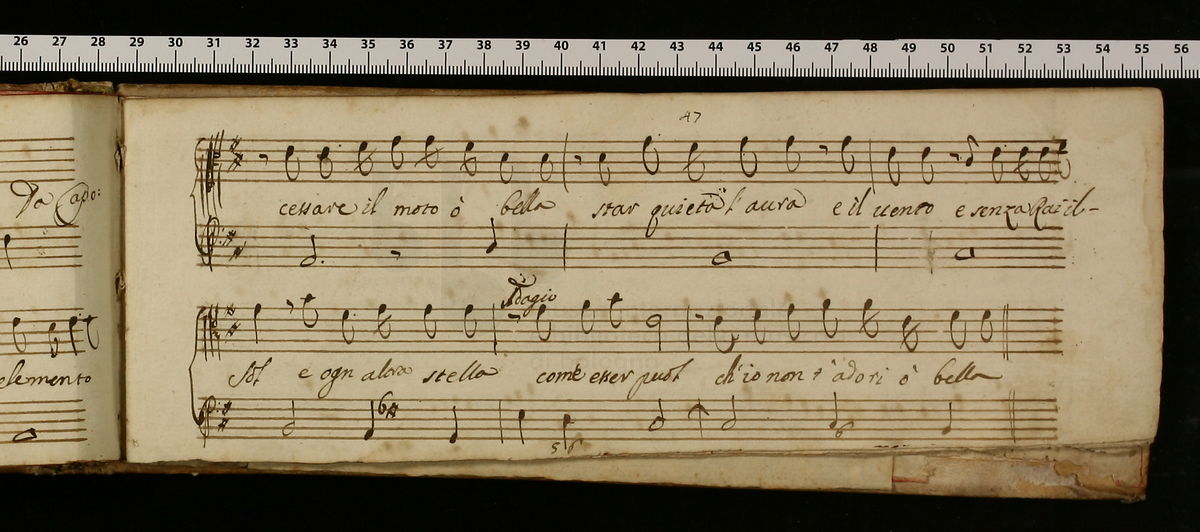 26 27 28 29 30 31 32 33 34 35 36 37 38 39 40 41 42 43 44 45 46 47 48 49 50 51 52 53 54 55 56
47
Da Capo:
cessare il moto ò bella star quieta l'aura e il uento e senza Rai il-
Adagio
elemento
Sol e ogn altra stella come esser puol ch'io non t'adori ò bella
6
5 6
6